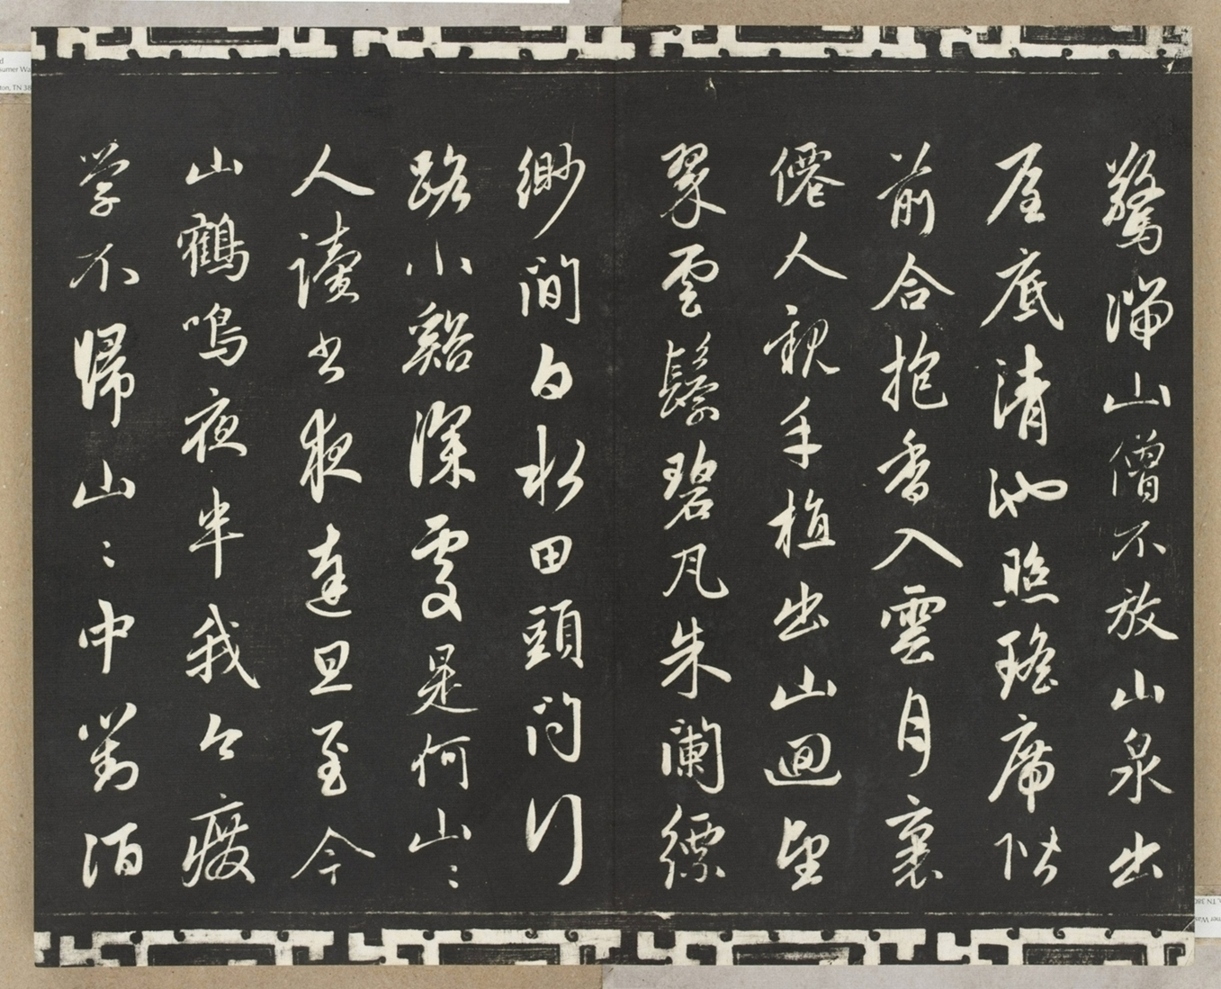 驚湍山僧不放山泉出
屋底清池照瑤席階
前合抱香入雲月裏
僊人親手植出山迴望
翠雲鬟碧瓦朱闌縹
緲間白水田頭問行
路小谿深處是何山〻
人讀書夜達旦至今
山鶴鳴夜半我今廢
学不歸山〻中對酒